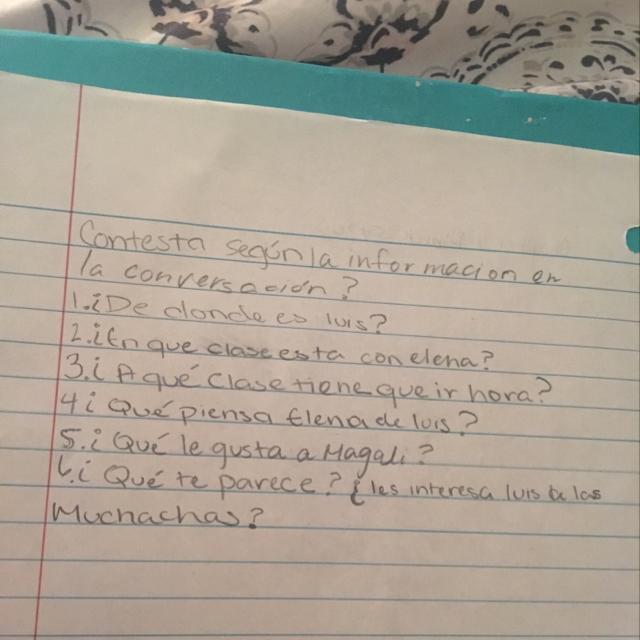 Contesta según la informacion en
la conversación?
1.¿De donde es luis?
2.¿En que clase esta con elena?
3.¿A qué Clase tiene que ir hora?
4¿ Qué piensa Elena de luis?
5.¿ Qué le gusta a Magali?
6.¿ Qué te parece? ¿les interesa luis a las
Muchachas?